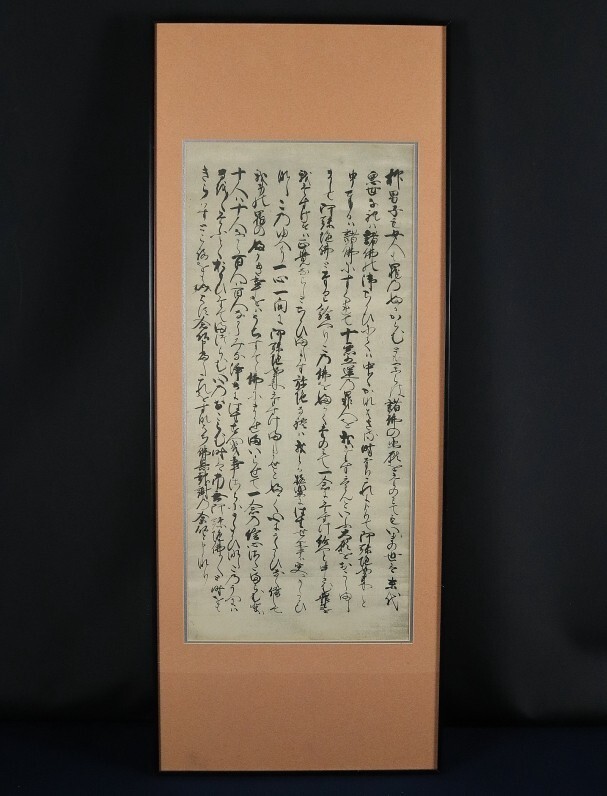 抑男子も女人も罪のふかからむともからは諸佛の悲願をたのみてもいまの時は末代
悪世なれは諸佛の御ちからにては中々かなはさる時なりこれによりて阿弥陀如来と
申奉るは諸佛にすくれて十悪五逆の罪人を我たすけんといふ大願をおこしまし
まして阿弥陀佛となり給へりこの佛をふかくたのみて一念御たすけ候へと申さむ衆生を
我たすけすは正覚ならしとちかひまします弥陀なれは我らか極楽に往生せん事は更にうたかひ
なしこのゆへに一心一向に阿弥陀如来たすけ給へとふかく心にうたかひなく信して
我身の罪のふかき事をはうちすて佛にまかせまいらせて一念の信心さたまらむ輩は
十人は十人なから百人は百人なからみな浄土に往生すへき事さらにうたかひなしこのうへには
なをなをたふとくおもひたてまつらむ心のおこらむ時は南無阿弥陀佛と時をも
きらはすところをもきらはす念佛申へしこれをすなはち佛恩報謝の念佛と申なり